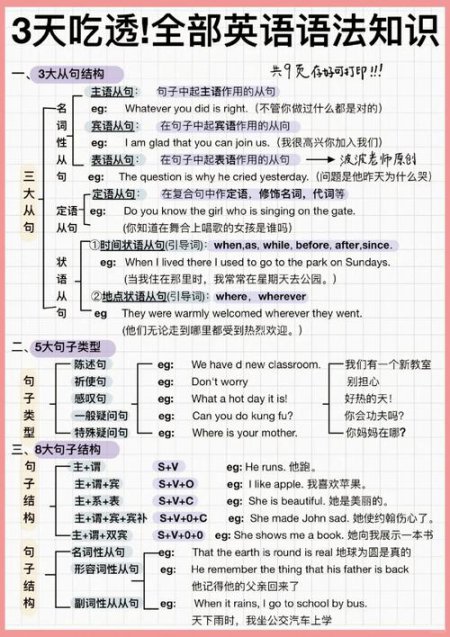 3天吃透!全部英语语法知识
一、3大从句结构
共9页存好可打印!!!
三大从句
名词性从句
主语从句: 句子中起主语作用的从句
eg: Whatever you did is right.(不管你做过什么都是对的)
宾语从句: 在句子中起宾语作用的从向
eg: I am glad that you can join us.(我很高兴你加入我们)
表语从句: 在句子中起表语作用的从句 波波老师原创
eg: The question is why he cried yesterday.(问题是他昨天为什么哭)
定语从句
定语从句: 在复合句中作定语,修饰名词,代词等
eg: Do you know the girl who is singing on the gate.
(你知道在舞合上唱歌的女孩是谁吗)
状语从句
①时间状语从句(引导词): when,as, while, before, after,since.
eg: When I lived there I used to go to the park on Sundays.
(当我住在那里时,我常常在星期天去公园。)
②地点状语从句(引导词): where, wherever
eg They were warmly welcomed wherever they went.
(他们无论走到哪里都受到热烈欢迎。)
二、5大句子类型
句子类型
陈述句 eg: We have d new classroom. 我们有一个新教室
祈使句 eg: Don't worry 别担心
感叹句 eg: What a hot day it is! 好热的天!
一般疑问句 eg: Can you do kung fu? 你会功夫吗?
特殊疑问句 eg: Where is your mother. 你妈妈在哪?
三、8大句子结构
句子结构
主+谓 S+V eg: He runs. 他跑。
主+谓+宾 S+V+O eg: I like apple. 我喜欢苹果。
主+系+表 S+V+C eg: She is beautiful. 她是美丽的。
主+谓+宾+宾补 S+V+0+C eg: She made John sad. 她使约翰伤心了。
主+谓+双宾 S+V+0+0 eg: She shows me a book. 她向我展示一本书
句子结构
名词性从句 eg: That the earth is round is real 地球为圆是真的
形容词性从句 eg: He remember the thing that his father is back
他记得他的父亲回来了
副词性从从句 eg: When it rains, I go to school by bus.
天下雨时，我坐公交汽车上学